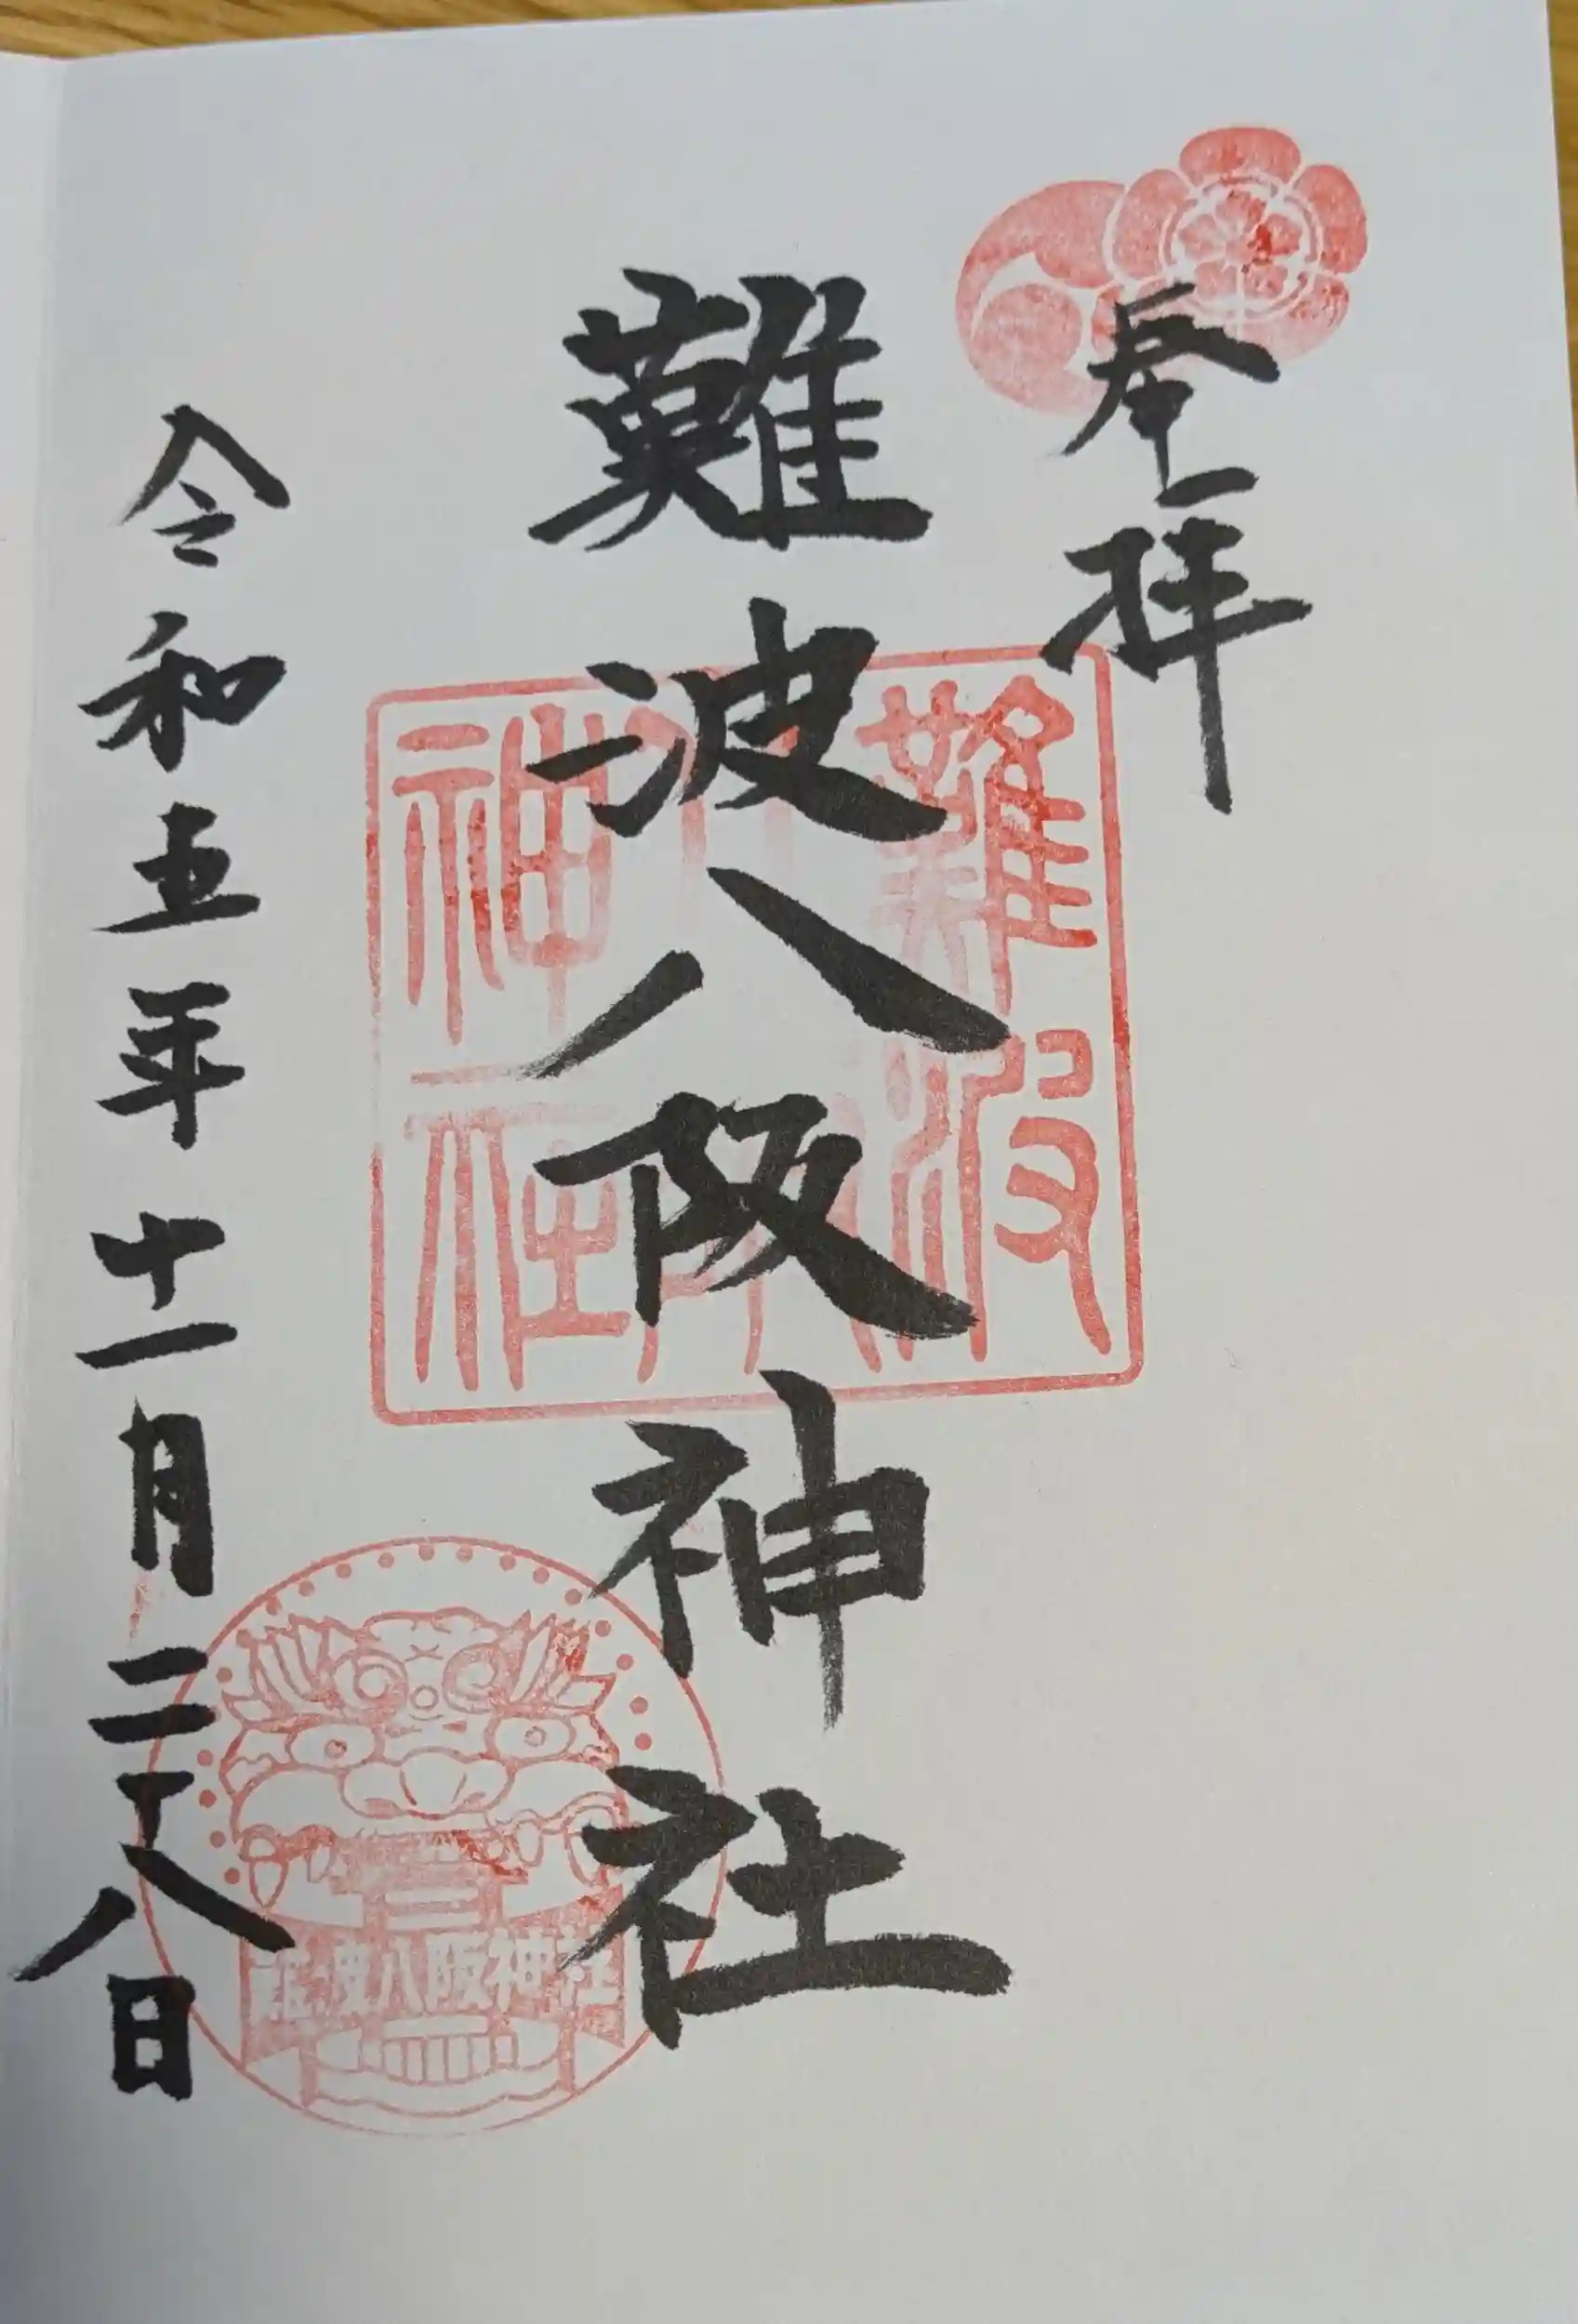 奉拝
難波八阪神社
難波
神社
難波八阪神社
令和五年十一月二十八日